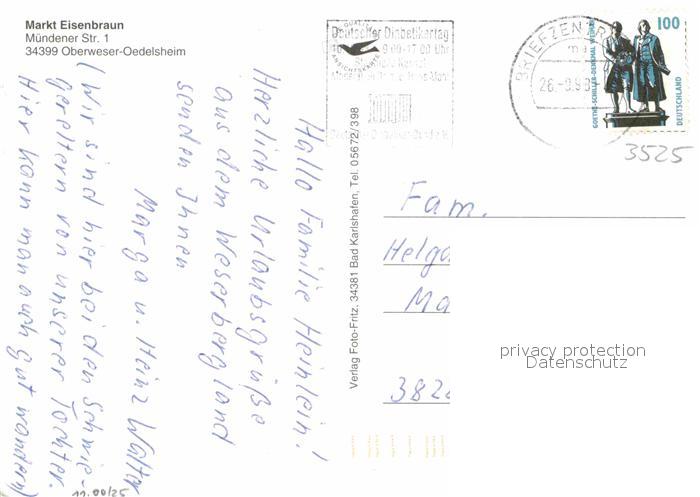 Markt Eisenbraun
Mündener Str. 1
34399 Oberweser-Oedelsheim
Hallo Familie Heinlein!
Herzliche Urlaubsgrüße
aus dem Weserbergland
senden Ihnen
Marga u. Heinz Walter
(Wir sind hier bei den Schwie-
gereltern von unserer Tochter.
Hier kann man auch gut wandern)
11.00/25
Verlag Foto-Fritz, 34381 Bad Karlshafen, Tel. 05672/398
Deutscher Diabetikertag
9.00-17.00 Uhr
BRIEFZENTR
26.-9.9
100
GOETHE-SCHILLER-DENKMAL WEIMAR
DEUTSCHLAND
3525
Fam.
Helga
Ma
382
privacy protection
Datenschutz